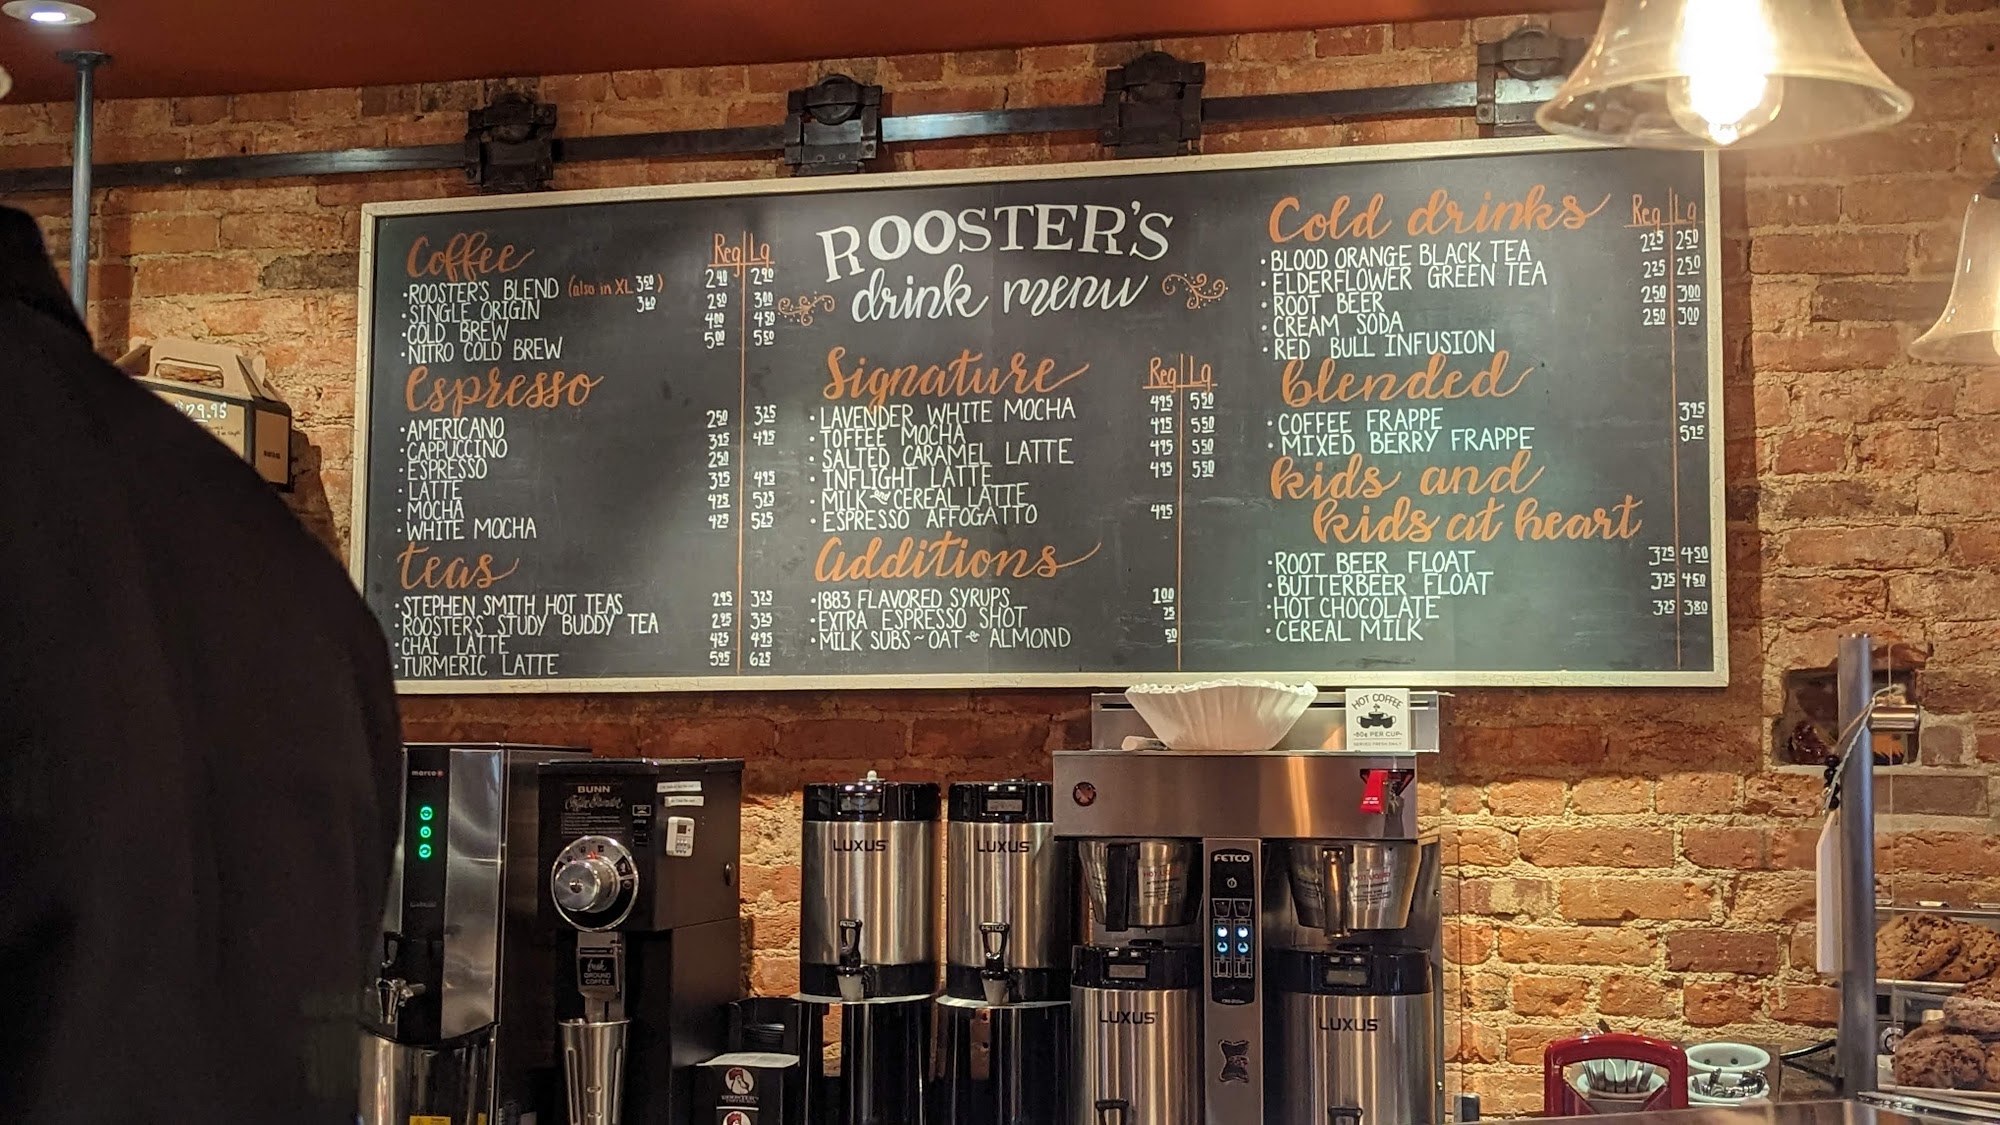 ROOSTER'S
drink menu
Coffee Reg Lg
• ROOSTER'S BLEND (also in XL 3.50) 2.40 2.90
• SINGLE ORIGIN 3.60 2.50 3.00
• COLD BREW 4.00 4.50
• NITRO COLD BREW 5.00 5.50
Espresso
• AMERICANO 2.50 3.25
• CAPPUCCINO 3.95 4.95
• ESPRESSO 2.50
• LATTE 3.95 4.95
• MOCHA 4.25 5.25
• WHITE MOCHA 4.75 5.25
teas
• STEPHEN SMITH HOT TEAS 2.95 3.25
• ROOSTER'S STUDY BUDDY TEA 2.95 3.25
• CHAI LATTE 4.25 4.95
• TURMERIC LATTE 5.95 6.25
Signature Reg Lg
• LAVENDER WHITE MOCHA 4.95 5.50
• TOFFEE MOCHA 4.95 5.50
• SALTED CARAMEL LATTE 4.95 5.50
• INFLIGHT LATTE 4.95 5.50
• MILK and CEREAL LATTE
• ESPRESSO AFFOGATTO 4.95
additions
• 1883 FLAVORED SYRUPS 1.00
• EXTRA ESPRESSO SHOT 75
• MILK SUBS ~ OAT & ALMOND 50
Cold drinks Reg Lg
• BLOOD ORANGE BLACK TEA 2.25 2.50
• ELDERFLOWER GREEN TEA 2.25 2.50
• ROOT BEER 2.50 3.00
• CREAM SODA 2.50 3.00
• RED BULL INFUSION
blended
• COFFEE FRAPPE 3.95
• MIXED BERRY FRAPPE 5.95
kids and
kids at heart
• ROOT BEER FLOAT 3.75 4.50
• BUTTERBEER FLOAT 3.75 4.50
• HOT CHOCOLATE 3.25 3.80
• CEREAL MILK
HOT COFFEE
-80¢ PER CUP-
SERVED FRESH DAILY
marco
BUNN
Coffee Grinder
fresh
GROUND
COFFEE
LUXUS
FETCO
LUXUS
FETCO
FETCO
LUXUS
LUXUS
ROOSTER'S